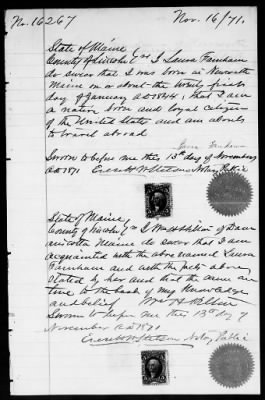 No. 16267 Nov. 16/71.
State of Maine
County of Lincoln ss I Laura Farnham
do swear that I was born in Newcastle
Maine on or about the twenty first
day of January A.D. 1844; that I am
a native born and loyal citizen
of the United States and am about
to travel abroad
Laura Farnham
Sworn to before me this 13th day of November
A.D. 1871 Everett W Stetson Notary Public
State of Maine,
County of Lincoln ss I Wm H Hilton of Dam
ariscotta Maine do swear that I am
acquainted with the above named Laura
Farnham and with the facts above
stated by her and that the same are
true to the best of my knowledge
and belief Wm H Hilton
Sworn to before me this 13th day of
November A.D. 1871
Everett W Stetson Notary Public